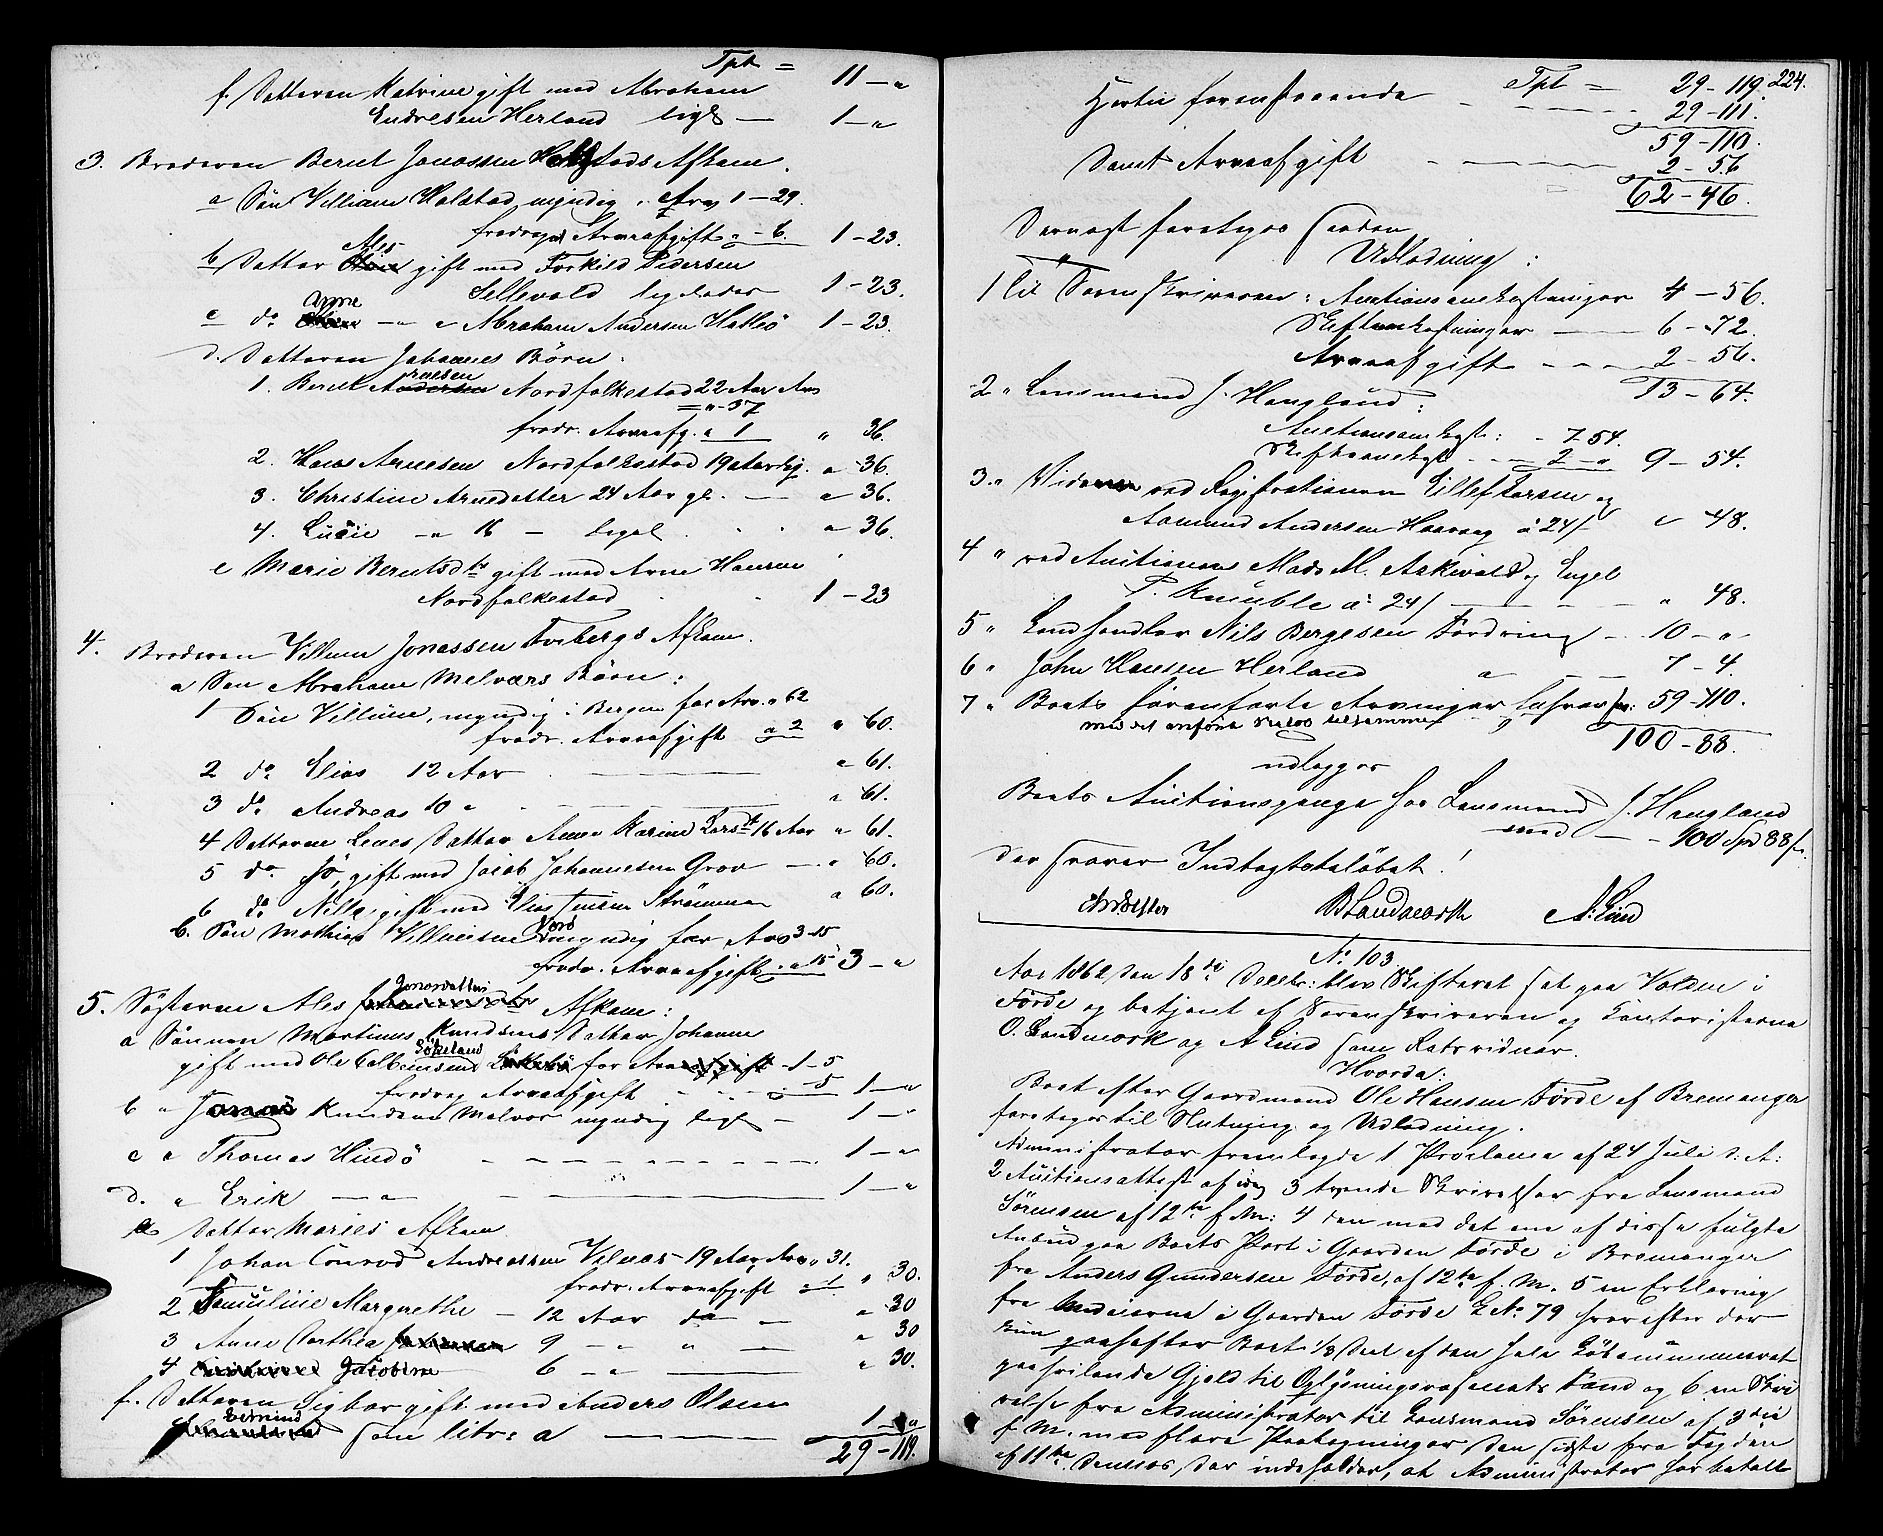 Tpt = 11 — "
f. Datteren Katrine gift med Abraham
Endresen Herland ligl — 1 — "
3. Broderen Bernt Jonassen Afkom.
a Søn Villum Halstad myndig, Arv 1 — 29.
fradrag Arveafgift " - 6. 1 — 23.
b Datter Ales gift med Torkild Pedersen
Sellevold ligeledes 1 — 23.
c do Anne — " " Abraham Andersen Hatlesø 1 — 23.
d. Datteren Johannes Børn.
1. Bernt Arnesen Nordfalkestad 22 Aar Arv
= " - 37
fradr. Arveafg. " 1 " 36.
2. Hans Arnesen Nordfalkestad 19 Aar lig. " - 36.
3. Christine Arnedatter 24 Aar gl. — " 36.
4. Lucie — " 16 — ligel. " 36.
e Marie Berntsdtr gift med Arne Hansen
Nordfalkestad 1 — 23
4. Broderen Villum Jonassen Forbergs Afkom.
a Søn Abraham Melværs Børn:
1 Søn Villum, myndig i Bergen faar Arv " 62
fradr. Arveafgift " 2 " 60.
2 do Elias 12 Aar — " 61.
3 do Andreas 10 " — " 61.
4 Datteren Lenes Datter Anne Karine Larsdt 16 Aar " 61.
5 do Jo, gift med Jacob Johannesen Grov — " 60.
6 do Nille gift med Elias Strømmen " 60.
b. Søn Mathias Villumsen Nord myndig faar Arv 3 - 15
fradr. Arveafgift " 15 3 — "
5. Søsteren Ales Jonasdatters Afkom:
a Sønnen Martinus Knudsens Datter Johanne
gift med Ole Sökeland for Arv 1 - 5
fradrag Arveafgift " - 5 1 — "
b " Jonas Knudsen Melvær myndig ligl — 1 — "
c " Thomas Hindø — 1 — "
d. " Erik — " — 1 — "
e Datter Maries Afkom
1 Johan Conrad Andreassen Vilnæs 19 Aar Arv " 31.
fradr. Arveafgift " 1 " 30.
2 Margrethe — 12 Aar do — " 30
3 Anne Dorthea 9 — " " — " 30
4 Jacobine 6 — " — " 30.
f. Datteren Sigbor gift med Anders Olsen
som litr: a — 1 — "
29 - 119.
224.
Tpt = 29 - 119.
Hertil foranstaaende — 29 - 111.
59 - 110.
Samt Arveafgift — 2 - 56
62 - 46.
Dernæst foretoges saadan
Udlodning:
1 Til Sorenskriveren: Auctionsomkostninger 4 — 56.
Skifteomkostninger — 6 - 72.
Arveafgift — 2 - 56.
13 - 64.
2 " Lensmand J. Haugland:
Auctionsomkost: - 7 54.
Skifteomkost — 2 - " 9 - 54.
3 " Vidnerne ved Registrationen Ellef Larsen og
Aamund Andersen Haavag à 24 / " 48.
4 " ved Auctionen Mads M. Askevold og Engel
P. Knutble à 24 / — " 48.
5 " Landhandler Nils Bergesen Fordring — 10 - "
6 " John Hansen Herland " — 7 - 4.
7 " Boets foranførte Arvinger 59 - 110.
med det anførte Beløb tilsammen
100 - 88.
udlægges
Boets Auctionspenge hos Lensmand J. Haugland
med — 100 Spd 88 /.
der svarer Indtægtsbeløbet!
O Landmark A. Lind
No 103.
Aar 1862 den 18de Decbr: blev Skifteret sat paa Volden i
Førde og betjent af Sorenskriveren og Contoristerne
O. Landmark og A Lind som Retsvidner.
Hvorda:
Boet efter Gaardmand Ole Hansen Førde af Bremanger
foretoges til Slutning og Udlodning.
Administrator fremlagde 1 Proclama af 24 Juli d: A:
2 Auctionsattest af idag 3 tvende Skrivelser fra Lensmand
Sørensen af 12te f. M: 4 den med det ene af disse fulgte
Anbud paa Boets Part i Gaarden Førde i Bremanger
fra Anders Gundersen Førde, af 12te f. M. 5 en Erklæring
fra Medeierne i Gaarden Førde L No 79 hvorefter der
kun paahefter Boets 1/8 Deel af den hele Løbenummeret
paahvilende Gjeld til Oplysningsvæsenets Fond og 6 en Skri
velse fra Administrator til Lensmand Sørensen af 3die
f. M. med flere Paategninger den sidste fra Fogden
af 11te dennes, der indeholder, at Administrator har betalt